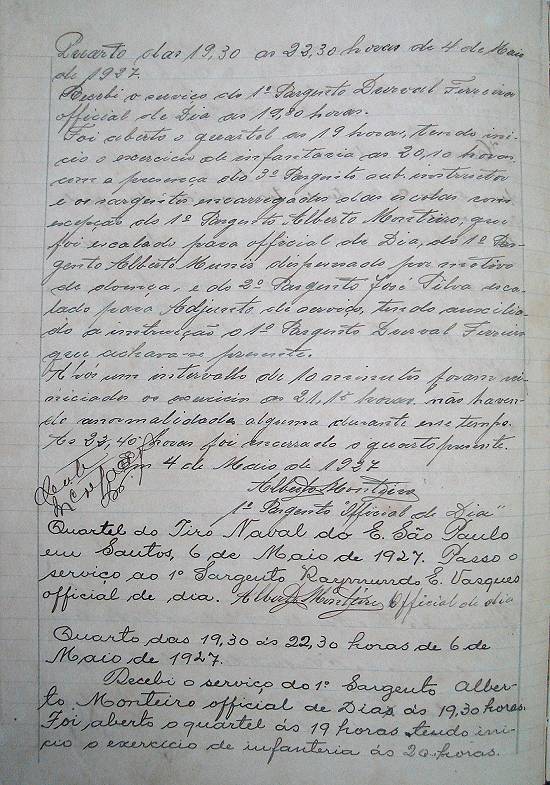 Quarto das 19,30 as 22,30 horas de 4 de Maio
de 1927.
Recebi o serviço do 1º Sargento Durval Ferreira
official de Dia as 19,30 horas.
Foi aberto o quartel as 19 horas, tendo ini-
cio o exercicio de infantaria as 20,10 horas
com a presença do 3º Sargento sub-instructor
e os sargentos encarregados das escolas com
excepção do 1º Sargento Alberto Monteiro, que
foi escalado para official de Dia, do 1º Sar-
gento Alberto Munis dispensado por motivo
de doença, e do 2º Sargento José Silva esca-
lado para Adjunto de serviço, tendo auxilia-
do a instrucção o 1º Sargento Durval Ferreira
que achava-se presente.
Após um intervallo de 10 minutos foram re-
iniciados os exercicios as 21,15 horas, não haven-
do anormalidade alguma durante esse tempo.
As 22,40 horas foi encerrado o quarto presente.
Em 4 de Maio de 1927
Alberto Monteiro
1º Sargento "Official de Dia"
Quartel do Tiro Naval do E. São Paulo
em Santos, 6 de Maio de 1927. Passo o
serviço ao 1º Sargento Raymundo E. Vasques
official de dia. Alberto Monteiro Official de dia
Quarto das 19,30 ás 22,30 horas de 6 de
Maio de 1927.
Recebi o serviço do 1º Sargento Alber-
to Monteiro official de Dia ás 19,30 horas.
Foi aberto o quartel ás 19 horas tendo ini-
cio o exercicio de infanteria ás 20 horas.